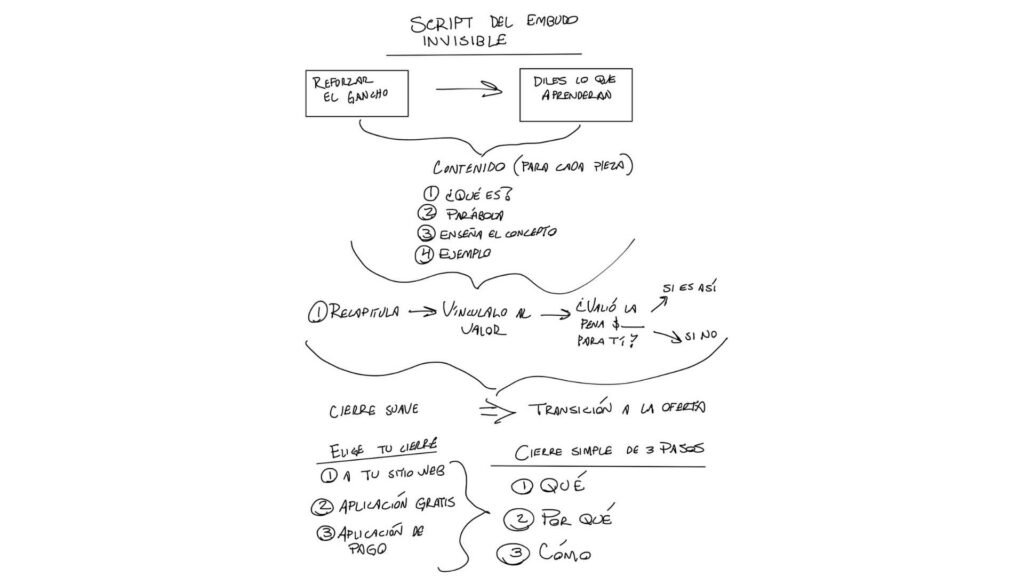 SCRIPT DEL EMBUDO
INVISIBLE
REFORZAR
EL GANCHO
DILES LO QUE
APRENDERAN
CONTENIDO (PARA CADA PIEZA)
1 ¿QUÉ ES?
2 PARÁBOLA
3 ENSEÑA EL CONCEPTO
4 EJEMPLO
1 RECAPITULA
VINCULALO AL
VALOR
¿VALIÓ LA
PENA $___
PARA TÍ?
SI ES ASÍ
SI NO
CIERRE SUAVE
TRANSICIÓN A LA OFERTA
ELIGE TU CIERRE
1 A TU SITIO WEB
2 APLICACIÓN GRATIS
3 APLICACIÓN DE
PAGO
CIERRE SIMPLE DE 3 PASOS
1 QUÉ
2 POR QUÉ
3 CÓMO